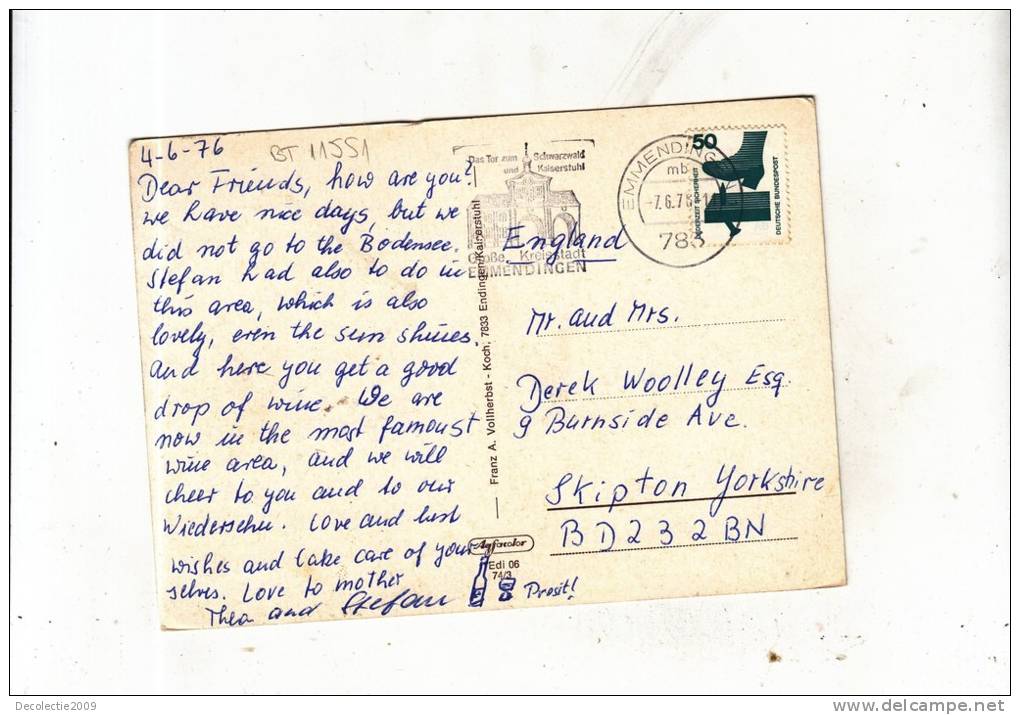 4-6-76
BT 11551
Dear Friends, how are you?
we have nice days, but we
did not go to the Bodensee.
Stefan had also to do in
this area, which is also
lovely, even the sun shines.
And here you get a good
drop of wine. We are
now in the most famoust
wine area, and we will
cheer to you and to our
Wiedersehn. Love and best
wishes and take care of your
selves. Love to mother
Thea and Stefan
Prosit!
Das Tor zum Schwarzwald
und Kaiserstuhl
Große Kreisstadt
EMMENDINGEN
EMMENDING
mb
-7.6.76
783
50
JEDERZEIT SICHERHEIT
DEUTSCHE BUNDESPOST
Franz A. Vollherbst - Koch, 7833 Endingen/Kaiserstuhl
Agfacolor
Edi 06
74/3
England
Mr. and Mrs.
Derek Woolley Esq.
9 Burnside Ave.
Skipton Yorkshire
BD23 2BN
Decolectie2009
delcampe.net